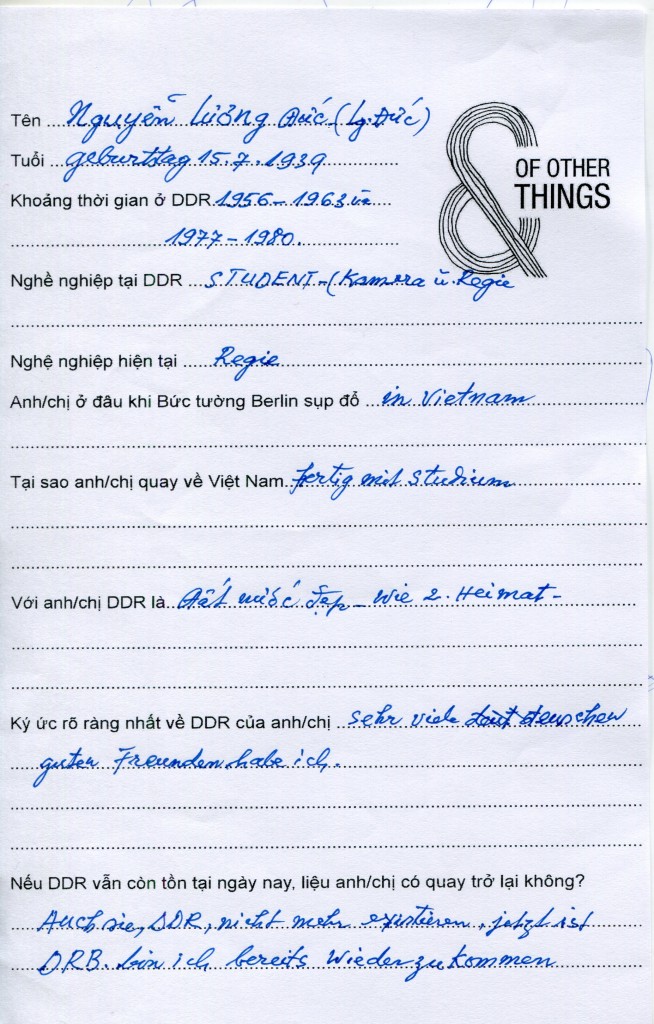 Tên Nguyễn Lương Đức (Lg. Đức)
Tuổi geburttag 15.7.1939
& OF OTHER THINGS
Khoảng thời gian ở DDR 1956 - 1963 và
1977 - 1980.
Nghề nghiệp tại DDR STUDENT - (Kamera u. Regie
Nghệ nghiệp hiện tại Regie
Anh/chị ở đâu khi Bức tường Berlin sụp đổ in Vietnam
Tại sao anh/chị quay về Việt Nam fertig mit Studium
Với anh/chị DDR là Đất nước đẹp - wie 2. Heimat -
Ký ức rõ ràng nhất về DDR của anh/chị sehr viele deuschen
guten Freunden habe ich.
Nếu DDR vẫn còn tồn tại ngày nay, liệu anh/chị có quay trở lại không?
Auch sie, DDR, nicht mehr existieren, jetzt ist
DRB. bin ich bereits wieder zu kommen